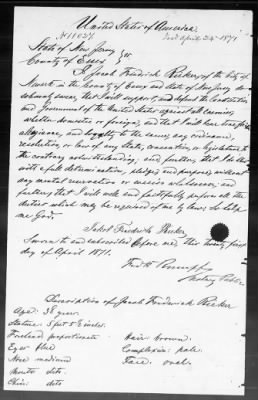 United States of America
No 11027 Issd April 24th 1871
State of New Jersey
County of Essex } ss
I Jacob Fredrick Rieker, of the City of
Newark in the County of Essex and State of New Jersey, do
solemnly swear, that I will support, and defend the Constitution
and Government of the United States against all enemies,
whether domestic or foreign; and that I will bear true faith
allegiance, and loyalty to the same; any ordinance,
resolution, or law of any State, convention, or legislature, to
the contrary notwithstanding; and further, that I do this
with a full determination, pledge and purpose, without
any mental reservation or evasion whatsoever; and
further, that I will well and faithfully perform all the
duties which may be required of me by law; So help
me God.
Jakob Friedrich Rieker
Sworn to and subscribed before me, this twenty first
day of April 1871.
Notary Public
Description of Jacob Frederick Rieker
Age: 38 years.
Stature: 5 feet 5 1/2 inches.
Forehead proportionate
Eyes blue
Nose medium
Mouth dito
Chin: dito
Hair: brown.
Complexion: pale.
Face: oval.